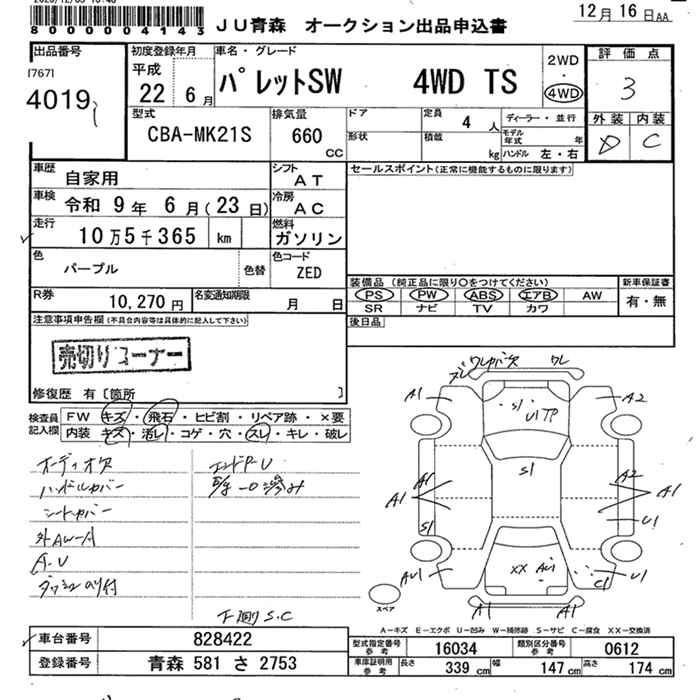 80000004143
JU青森 オークション出品申込書
12月16日AA
出品番号
[767]
4019
初度登録年月
平成
22 6月
車名・グレード
パレットSW 4WD TS
2WD
・
4WD
評価点
3
外装 内装
D C
型式
CBA-MK21S
排気量
660
CC
ドア
形状
定員
4 人
積載
kg
ディーラー・並行
モデル年式 年
ハンドル 左・右
車歴
自家用
シフト
AT
セールスポイント(正常に機能するものに限ります)
車検
令和 9年 6月(23日)
冷房
AC
走行
10万5千365 km
燃料
ガソリン
色
パープル
色替
色コード
ZED
装備品(純正品に限り○をつけてください)
PS PW ABS エアB AW
SR ナビ TV カワ
新車保証書
有・無
R券
10,270円
名変通知期限
月 日
後日品
注意事項申告欄(不具合内容等は具体的に記入して下さい)
売切りコーナー
修復歴 有〔箇所 〕
検査員記入欄
FW キズ・飛石・ヒビ割・リペア跡・×要
内装 キズ・汚レ・コゲ・穴・スレ・キレ・破レ
オーディオ欠
ハンドルカバー
シートカバー
外AW-A
A.U
エンドP.U
下廻S.C
A1 A2
S1
U1 TP
S1
A1 A1 S1
A2 A1 U1
AU1
XX AU1
C1 U1
A1 A1
スペア
A-キズ E-エクボ U-凹み W-補修跡 S-サビ C-腐食 XX-交換済
車台番号
828422
登録番号
青森 581 さ 2753
型式指定番号
参考
16034
類別区分番号
参考
0612
車庫証明用
参考
長さ 339cm 幅 147cm 高さ 174cm